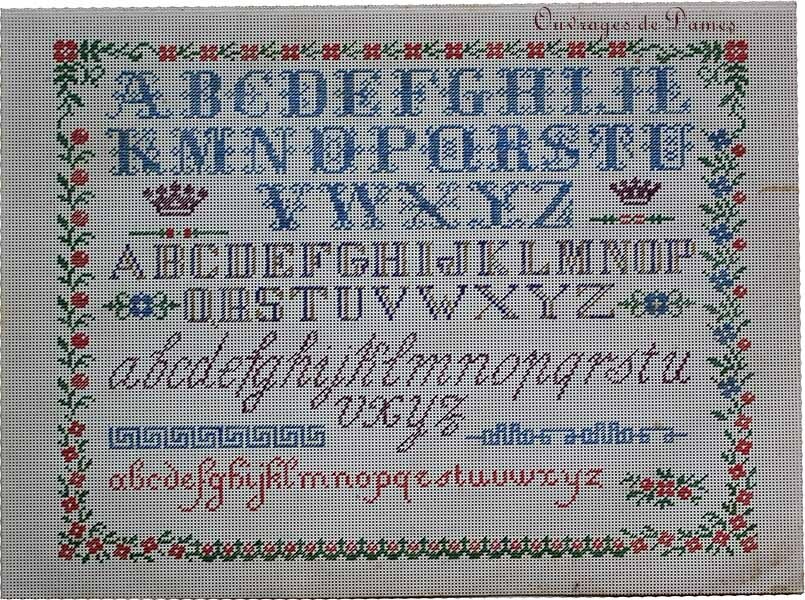 Ouvrages de Dames
ABCDEFGHIJL
KMNOPQRSTU
VWXYZ
ABCDEFGHIJKLMNOP
QRSTUVWXYZ
abcdefghijklmnopqrstu
vxyz
abcdefghijklmnopqrstuvwxyz